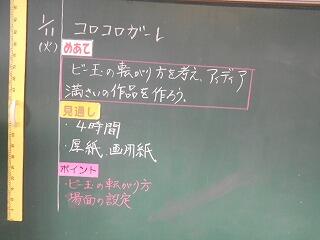 1/11
(火)
コロコロガーレ
めあて
ビー玉の転がり方を考え、アイディア
満さいの作品を作ろう。
見通し
・4時間
・厚紙、画用紙
ポイント
・ビー玉の転がり方
・場面の設定